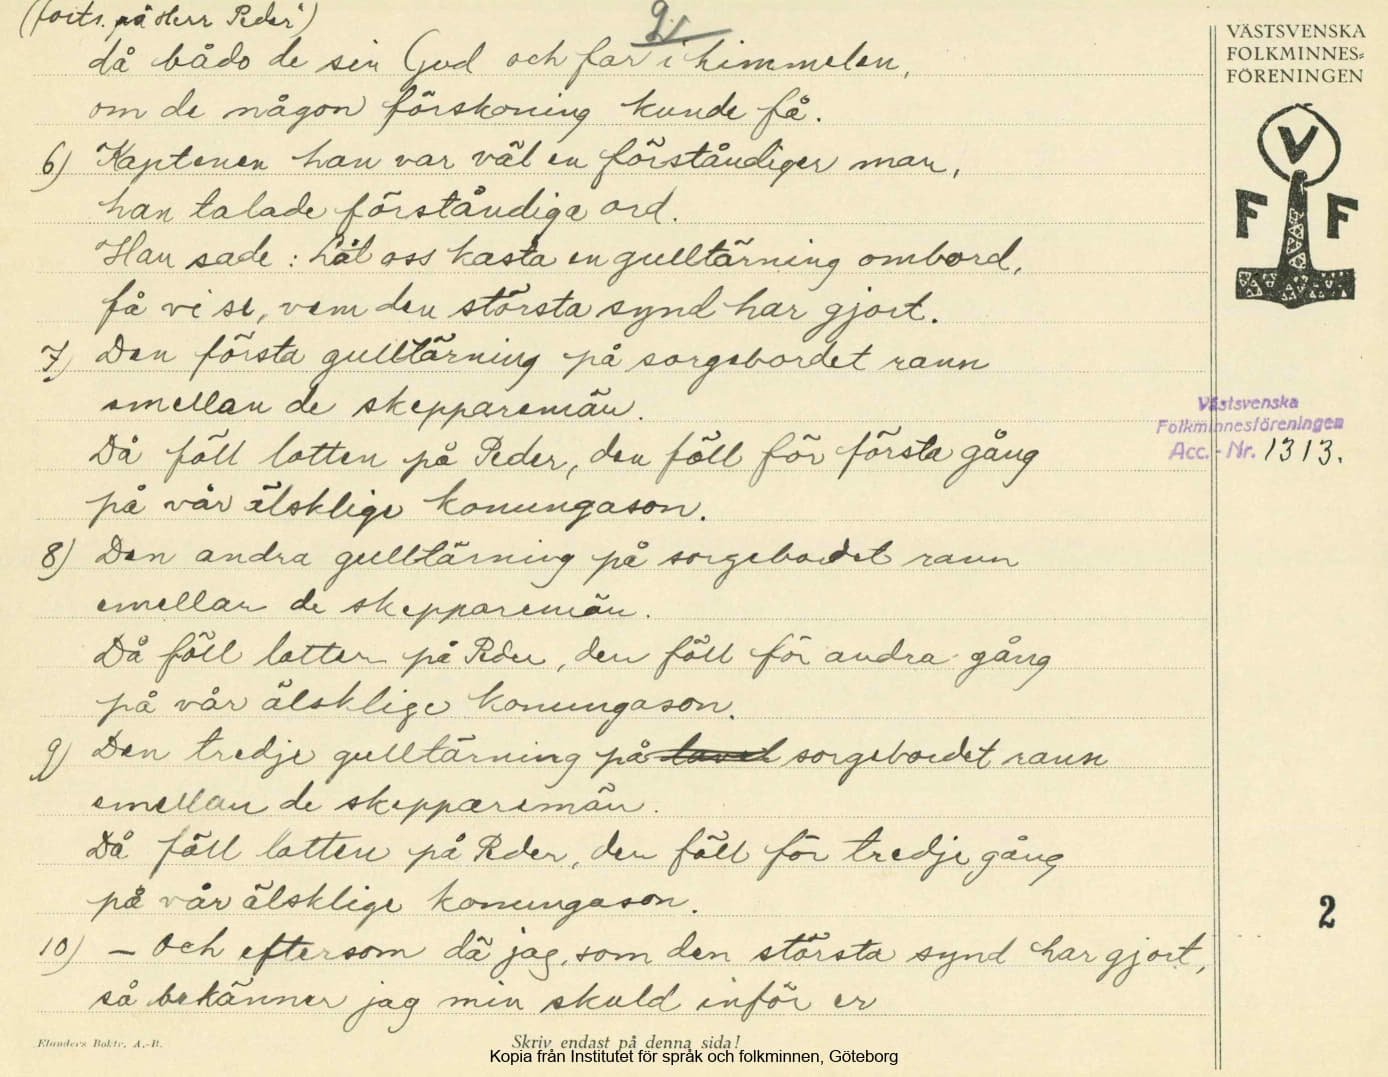 (forts. på "Herr Peder")
9.
då bådo de sin Gud och far i himmelen,
om de någon förskoning kunde få.
6) Kaptenen han var väl en förståndiger man,
han talade förståndiga ord.
Han sade: Låt oss kasta en gulltärning ombord,
få vi se, vem den största synd har gjort.
7) Den första gulltärning på sorgebordet rann
emellan de skepparemän.
Då föll lotten på Peder, den föll för första gång
på vår älsklige konungason.
8) Den andra gulltärning på sorgebordet rann
emellan de skepparemän.
Då föll lotten på Peder, den föll för andra gång
på vår älsklige konungason.
9) Den tredje gulltärning på sorgebordet rann
emellan de skepparemän.
Då föll lotten på Peder, den föll för tredje gång
på vår älsklige konungason.
10) – Och eftersom då jag, som den största synd har gjort,
så bekänner jag min skuld inför er
VÄSTSVENSKA
FOLKMINNES=
FÖRENINGEN
V
F F
Västsvenska
Folkminnesföreningen
Acc.-Nr. 1313.
2
Elanders Boktr. A.-B.
Skriv endast på denna sida!
Kopia från Institutet för språk och folkminnen, Göteborg